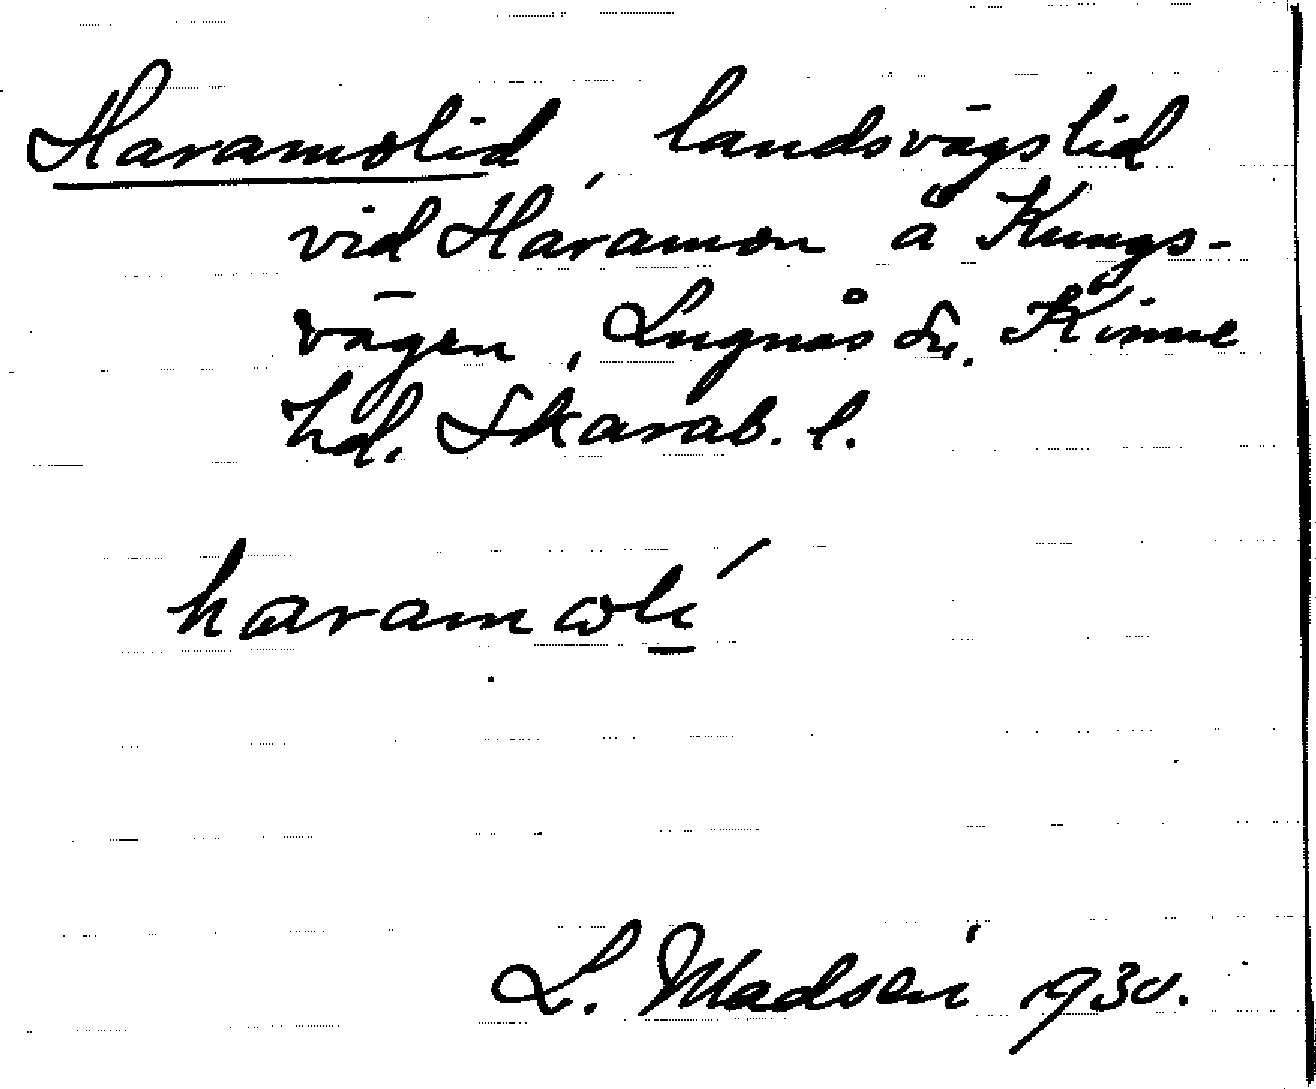 Haramolid, landsvägslid
vid Haramon å Kungs-
vägen, Lugnås sn, Kinne
hd. Skarab. l.
haramωlí
L. Madsén 1930.